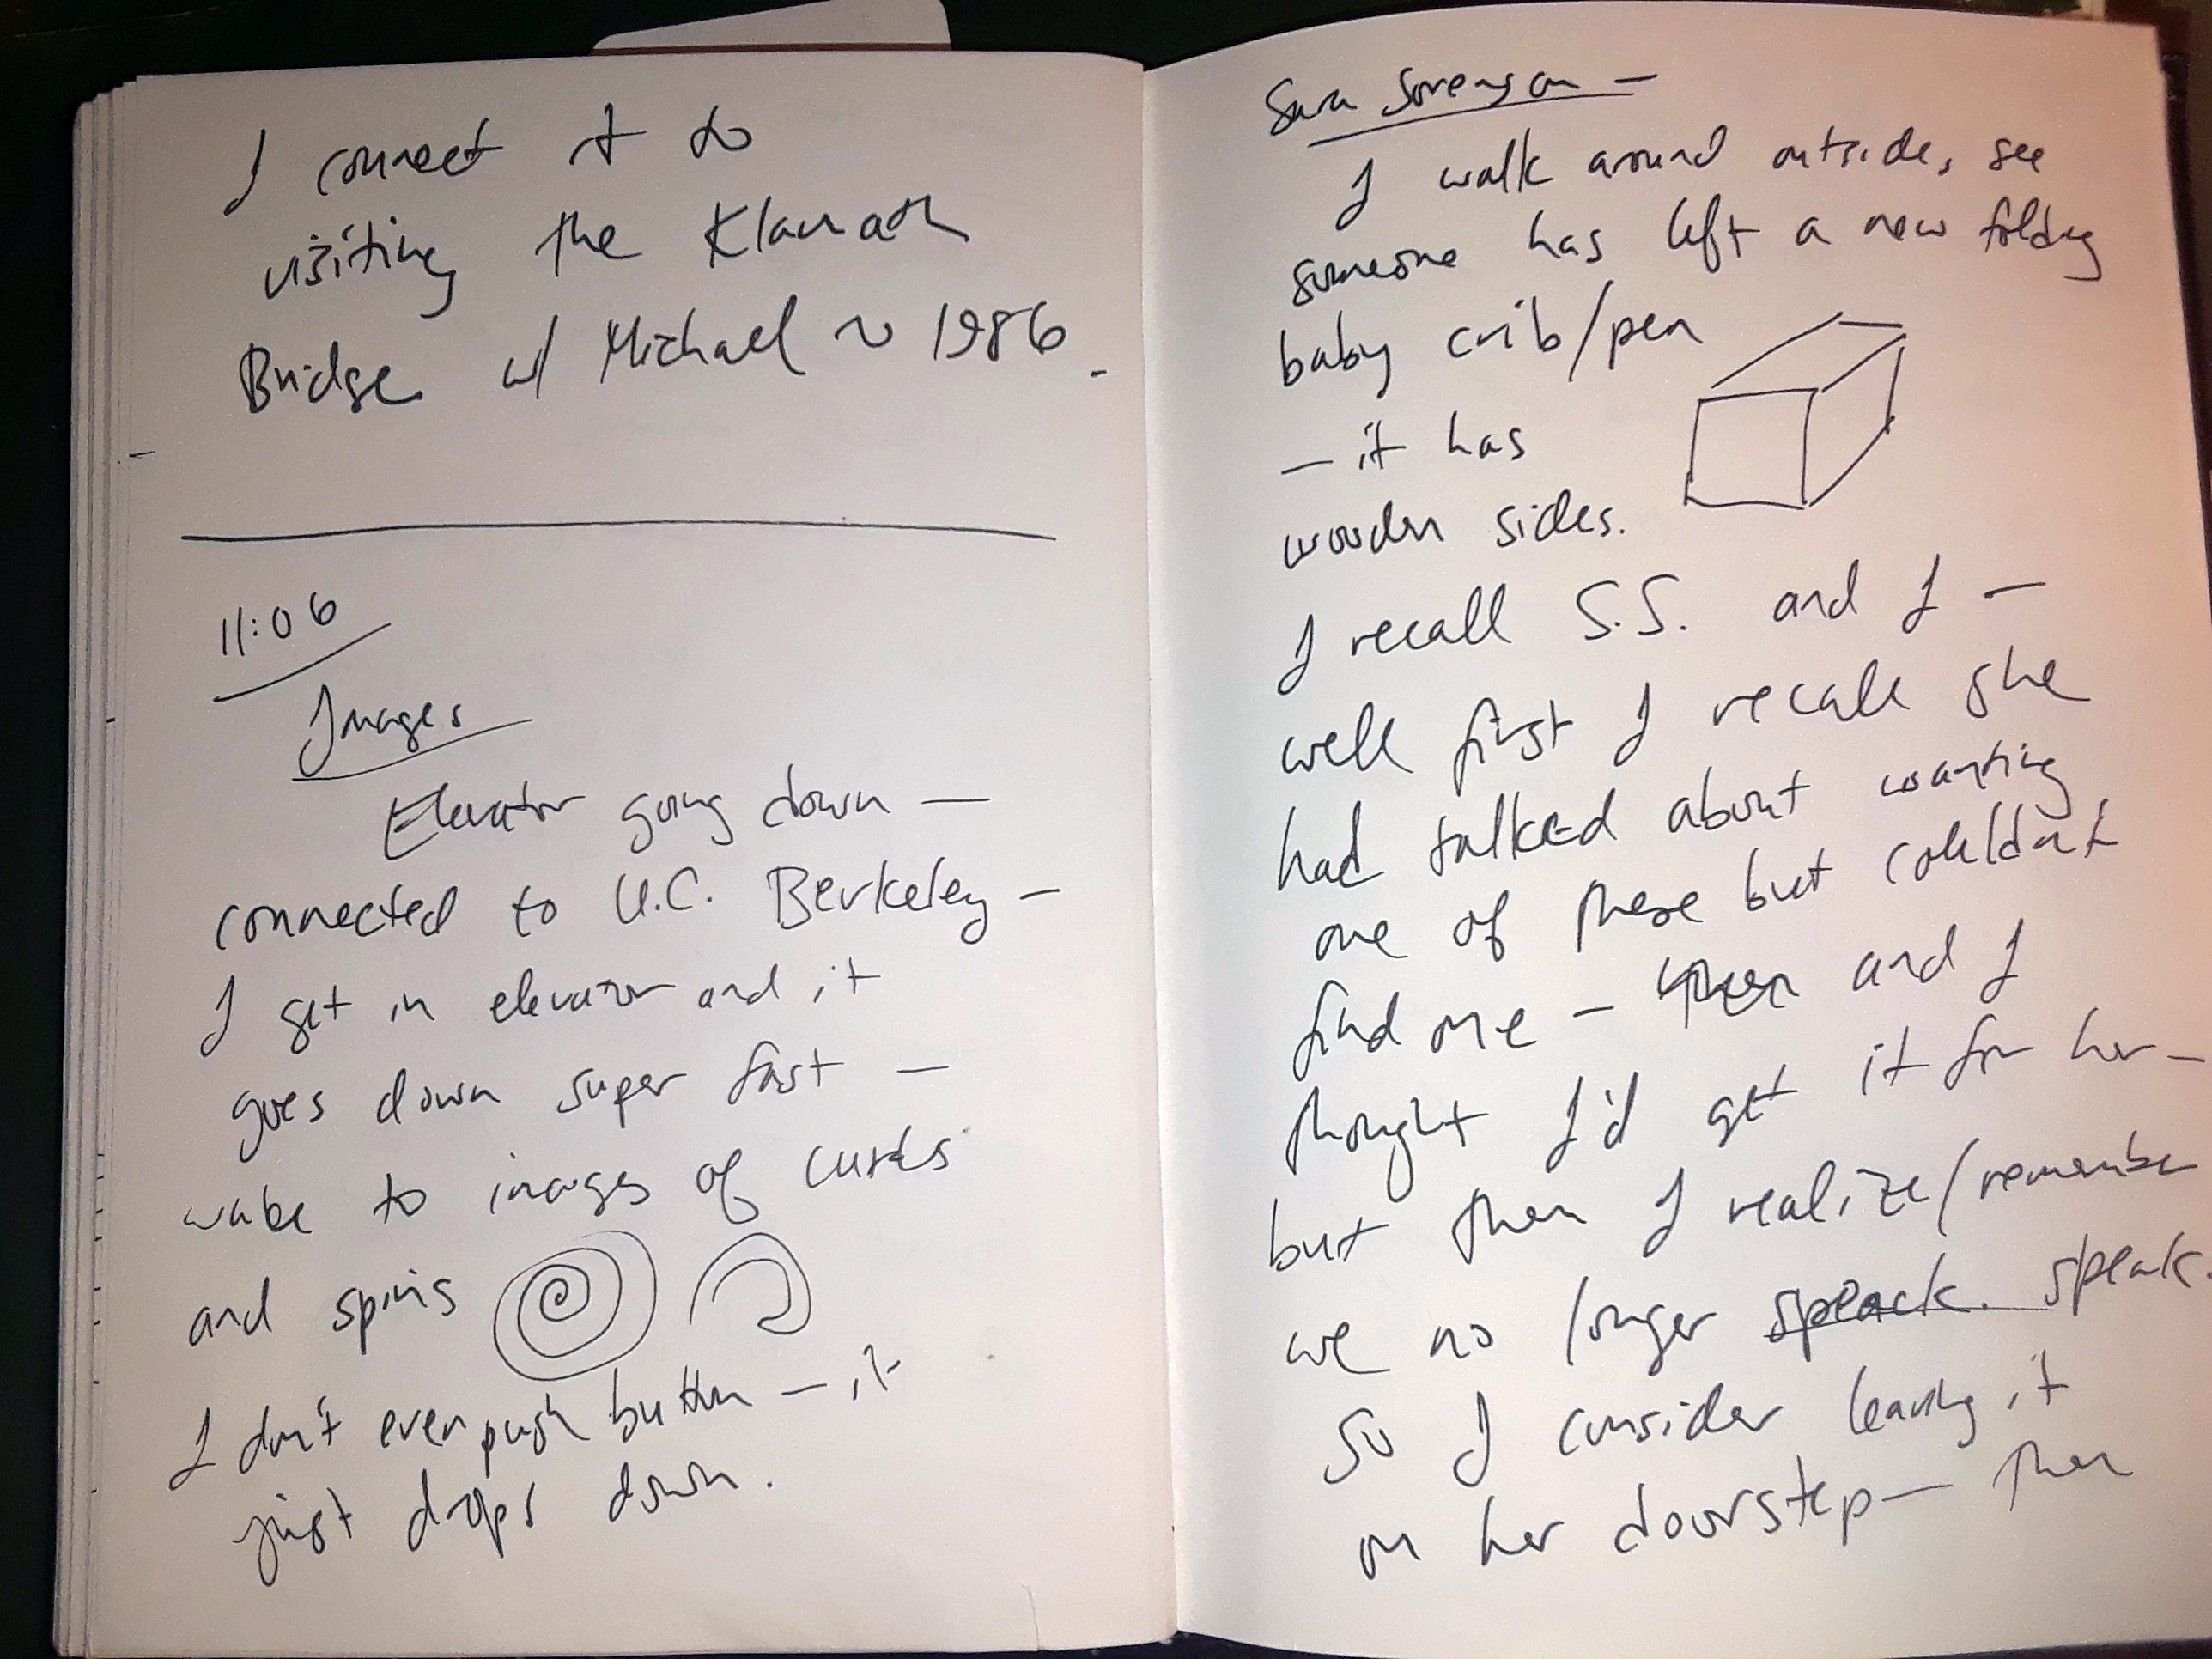 I connect it to
visiting the Klamath
Bridge w/ Michael ~ 1986.
11:06
Images
Elevator going down —
connected to U.C. Berkeley —
I get in elevator and it
goes down super fast —
wake to images of curves
and spins
I don't even push button — it
just drops down.
Sara Sorenson —
I walk around outside, see
someone has left a new folding
baby crib/pen
— it has
wooden sides.
I recall S.S. and I —
well first I recall she
had talked about wanting
one of these but couldn't
find one — then and I
thought I'd get it for her —
but then I realize/remember
we no longer speack. speak.
So I consider leaving it
on her doorstep — then